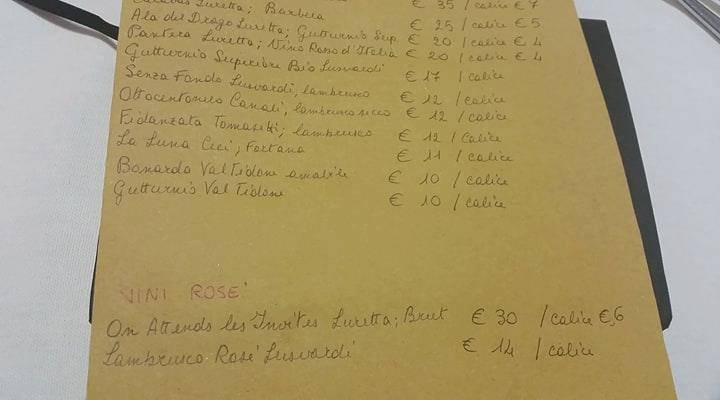 Luretta; Barbera € 35 / calice € 7
Ala del Drago Luretta; Gutturnio Sup. € 25 / calice € 5
Pantera Luretta; Vino Rosso d'Italia € 20 / calice € 4
Gutturnio Superiore Bio Lusvardi € 20 / calice € 4
Senza Fondo Lusvardi, lambrusco € 17 / calice
Ottocentonero Canali, lambrusco secco € 12 / calice
Fidanzata Tomasetti; lambrusco € 12 / calice
La Luna Ceci; Fortana € 12 / calice
Bonarda Val Tidone amabile € 11 / calice
Gutturnio Val Tidone € 10 / calice
€ 10 / calice
VINI ROSE'
On Attends les Invites Luretta; Brut € 30 / calice €,6
Lambrusco Rosé Lusvardi € 14 / calice